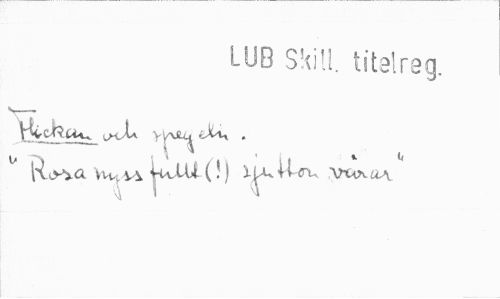 LUB Skill. titelreg.
Flickan och spegeln.
"Rosa nyss fullt(!) sjutton vårar"